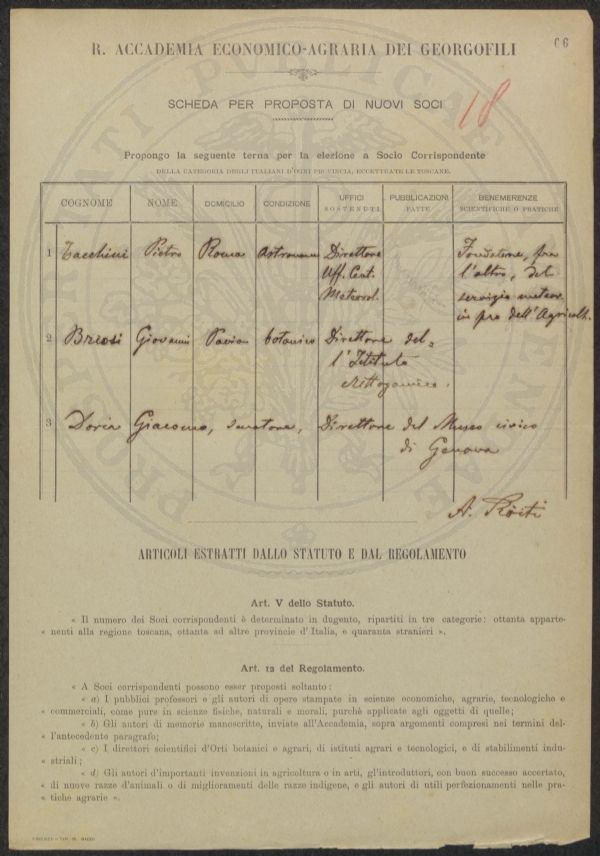 66
R. ACCADEMIA ECONOMICO-AGRARIA DEI GEORGOFILI
18
SCHEDA PER PROPOSTA DI NUOVI SOCI
Propongo la seguente terna per la elezione a Socio Corrispondente
DELLA CATEGORIA DEGLI ITALIANI D'OGNI PROVINCIA, ECCETTUATE LE TOSCANE.
COGNOME NOME DOMICILIO CONDIZIONE UFFICI SOSTENUTI PUBBLICAZIONI FATTE BENEMERENZE SCIENTIFICHE O PRATICHE
1 Tacchini Pietro Roma Astronomo Direttore Fondatore, fra
Uff. Cent. l'altro, del
Meteorol. servizio meteor.
in pro dell'Agricolt.
2 Briosi Giovanni Pavia botanico Direttore del-
l'Istituto
Crittogamico.
3 Doria Giacomo, senatore, Direttore del Museo civico
di Genova
A. Ròiti
ARTICOLI ESTRATTI DALLO STATUTO E DAL REGOLAMENTO
Art. V dello Statuto.
« Il numero dei Soci corrispondenti è determinato in dugento, ripartiti in tre categorie: ottanta apparte-
« nenti alla regione toscana, ottanta ad altre provincie d'Italia, e quaranta stranieri ».
Art. 12 del Regolamento.
« A Soci corrispondenti possono esser proposti soltanto:
« a) I pubblici professori e gli autori di opere stampate in scienze economiche, agrarie, tecnologiche e
« commerciali, come pure in scienze fisiche, naturali e morali, purchè applicate agli oggetti di quelle;
« b) Gli autori di memorie manoscritte, inviate all'Accademia, sopra argomenti compresi nei termini del-
« l'antecedente paragrafo;
« c) I direttori scientifici d'Orti botanici e agrari, di istituti agrari e tecnologici, e di stabilimenti indu-
« striali;
« d) Gli autori d'importanti invenzioni in agricoltura o in arti, gl'introduttori, con buon successo accertato,
« di nuove razze d'animali o di miglioramenti delle razze indigene, e gli autori di utili perfezionamenti nelle pra-
« tiche agrarie ».